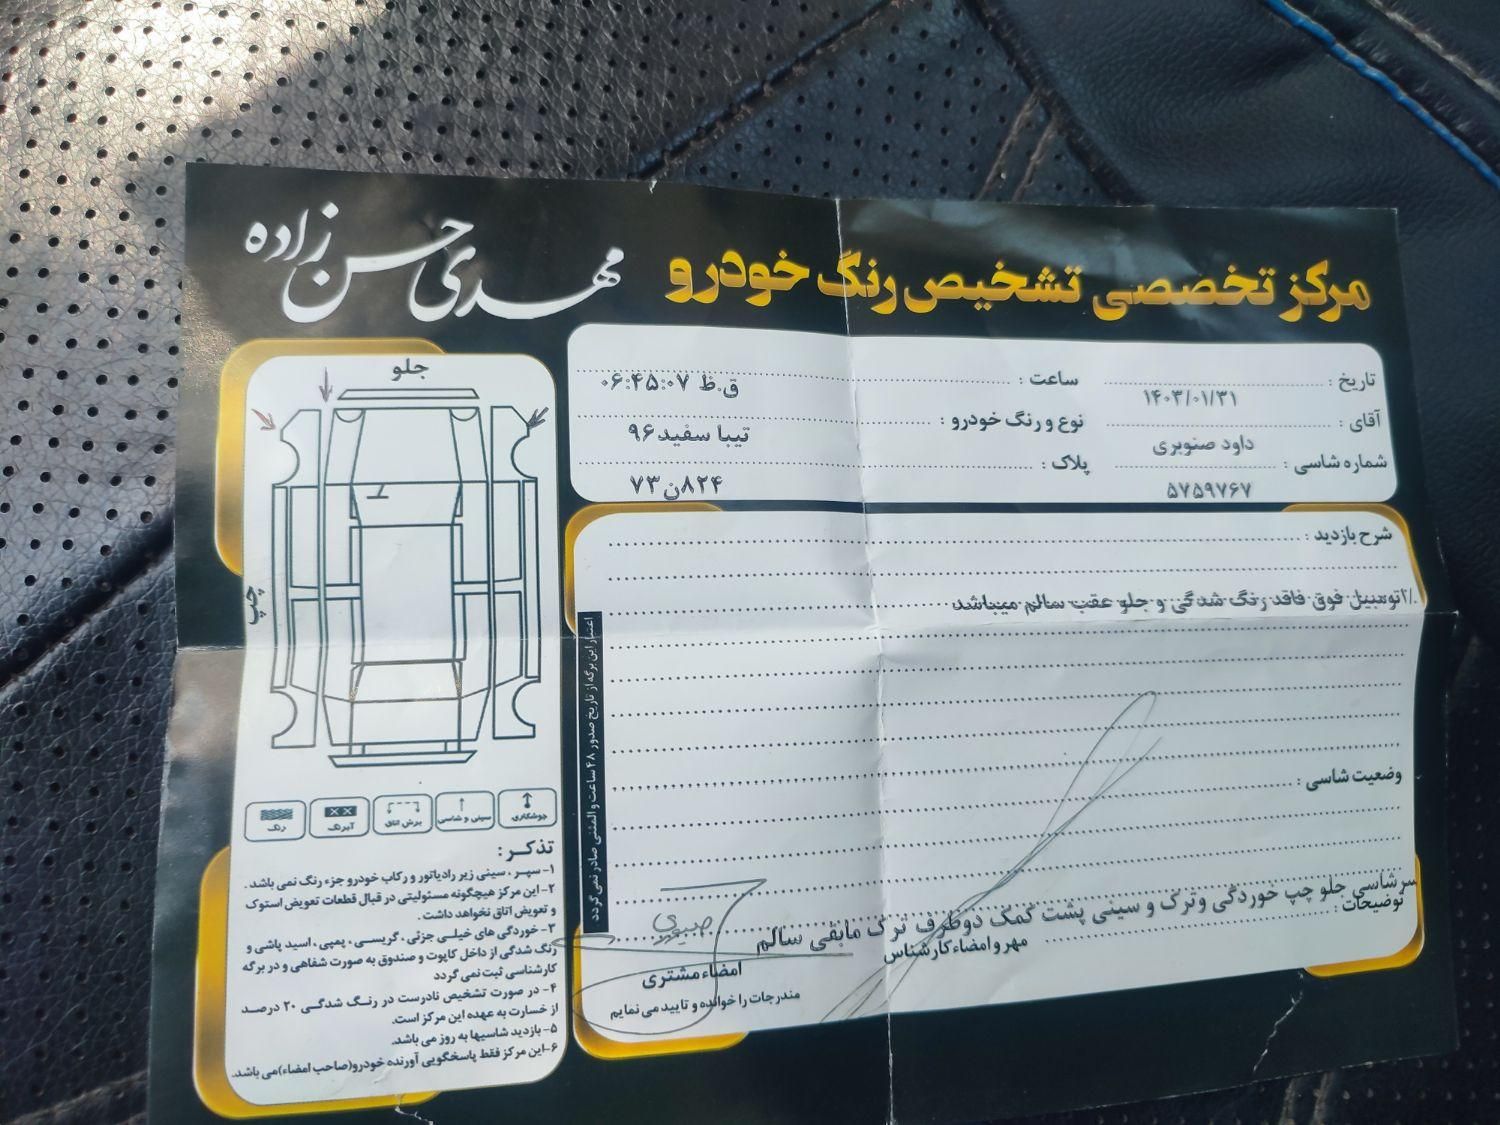 مرکز تخصصی تشخیص رنگ خودرو
مهدی حسن زاده
تاریخ : ۱۴۰۳/۰۱/۳۱
ساعت : ۰۶:۴۵:۰۷ ق.ظ
آقای : داود صنوبری
نوع و رنگ خودرو : تیبا سفید ۹۶
شماره شاسی : ۵۷۵۹۷۶۷
پلاک : ۸۲۴ن۷۳
شرح بازدید :
اتومبیل فوق فاقد رنگ شدگی و جلو عقب سالم میباشد
وضعیت شاسی :
سرشاسی جلو چپ خوردگی وترک و سینی پشت کمک دوطرف ترک مابقی سالم
توضیحات :
مهر و امضاء کارشناس
امضاء مشتری
مندرجات را خوانده و تایید می نمایم
اعتبار این برگه از تاریخ صدور ۴۸ ساعت و المثنی صادر نمی گردد
جلو
چپ
جوشکاری
سینی و شاسی
برش اتاق
آبرنگ
رنگ
تذکر :
۱- سپر ، سینی زیر رادیاتور و رکاب خودرو جزء رنگ نمی باشد .
۲- این مرکز هیچگونه مسئولیتی در قبال قطعات تعویض استوک
و تعویض اتاق نخواهد داشت .
۳- خوردگی های خیلی جزئی ، گریسی ، پمپی ، اسید پاشی و
رنگ شدگی از داخل کاپوت و صندوق به صورت شفاهی و در برگه
کارشناسی ثبت نمی گردد
۴- در صورت تشخیص نادرست در رنگ شدگی ۲۰ درصد
از خسارت به عهده این مرکز است.
۵- بازدید شاسیها به روز می باشد.
۶-این مرکز فقط پاسخگویی آورنده خودرو(صاحب امضاء)می باشد.